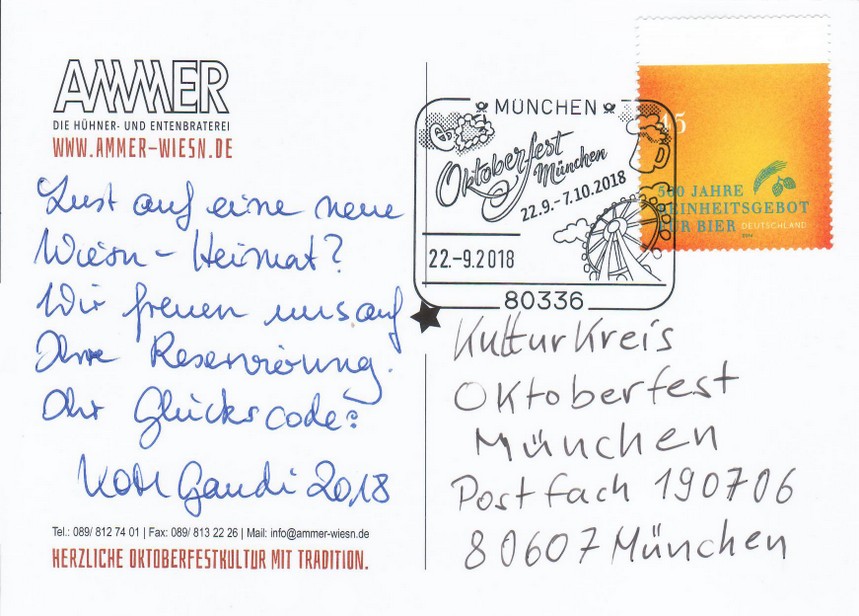 AMMER
DIE HÜHNER- UND ENTENBRATEREI
WWW.AMMER-WIESN.DE
Lust auf eine neue
Wiesn-Heimat?
Wir freuen uns auf
Ihre Reservierung.
Ihr Glückscode:
Gaudi 2018
Tel.: 089/ 812 74 01 | Fax: 089/ 813 22 26 | Mail: info@ammer-wiesn.de
HERZLICHE OKTOBERFESTKULTUR MIT TRADITION.
MÜNCHEN
Oktoberfest
München
22.9.-7.10.2018
22.-9.2018
80336
45
500 JAHRE
REINHEITSGEBOT
FÜR BIER DEUTSCHLAND
KulturKreis
Oktoberfest
München
Postfach 190706
80607 München